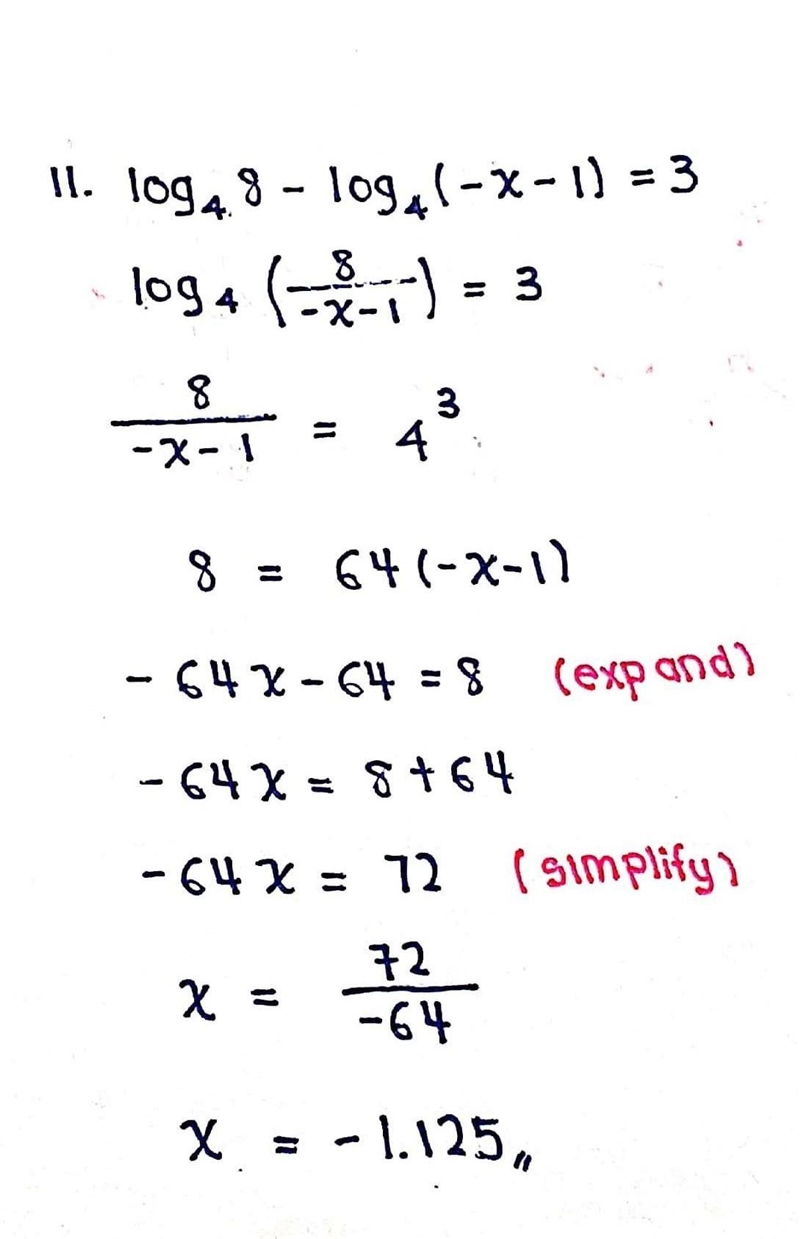 11. log₄ 8 - log₄ (-x-1) = 3
log₄ (8/(-x-1)) = 3
8/(-x-1) = 4³
8 = 64(-x-1)
-64x-64 = 8 (expand)
-64x = 8+64
-64x = 72 (simplify)
x = 72/-64
x = -1.125„